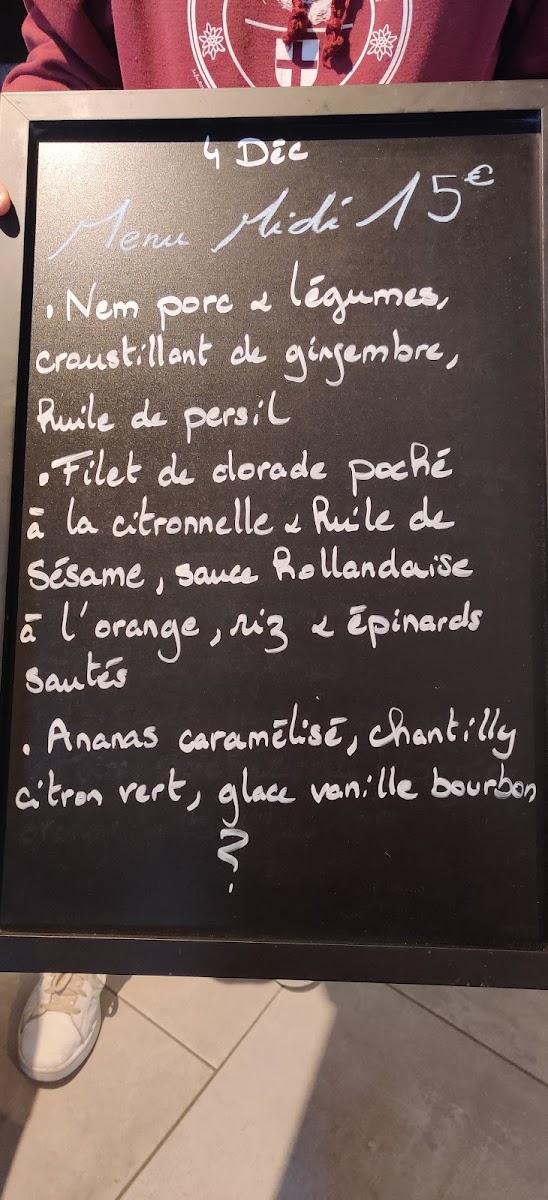 4 Déc
Menu Midi 15€
• Nem porc & légumes,
croustillant de gingembre,
huile de persil
• Filet de dorade poché
à la citronnelle & huile de
sésame, sauce hollandaise
à l'orange, riz & épinards
sautés
• Ananas caramélisé, chantilly
citron vert, glace vanille bourbon